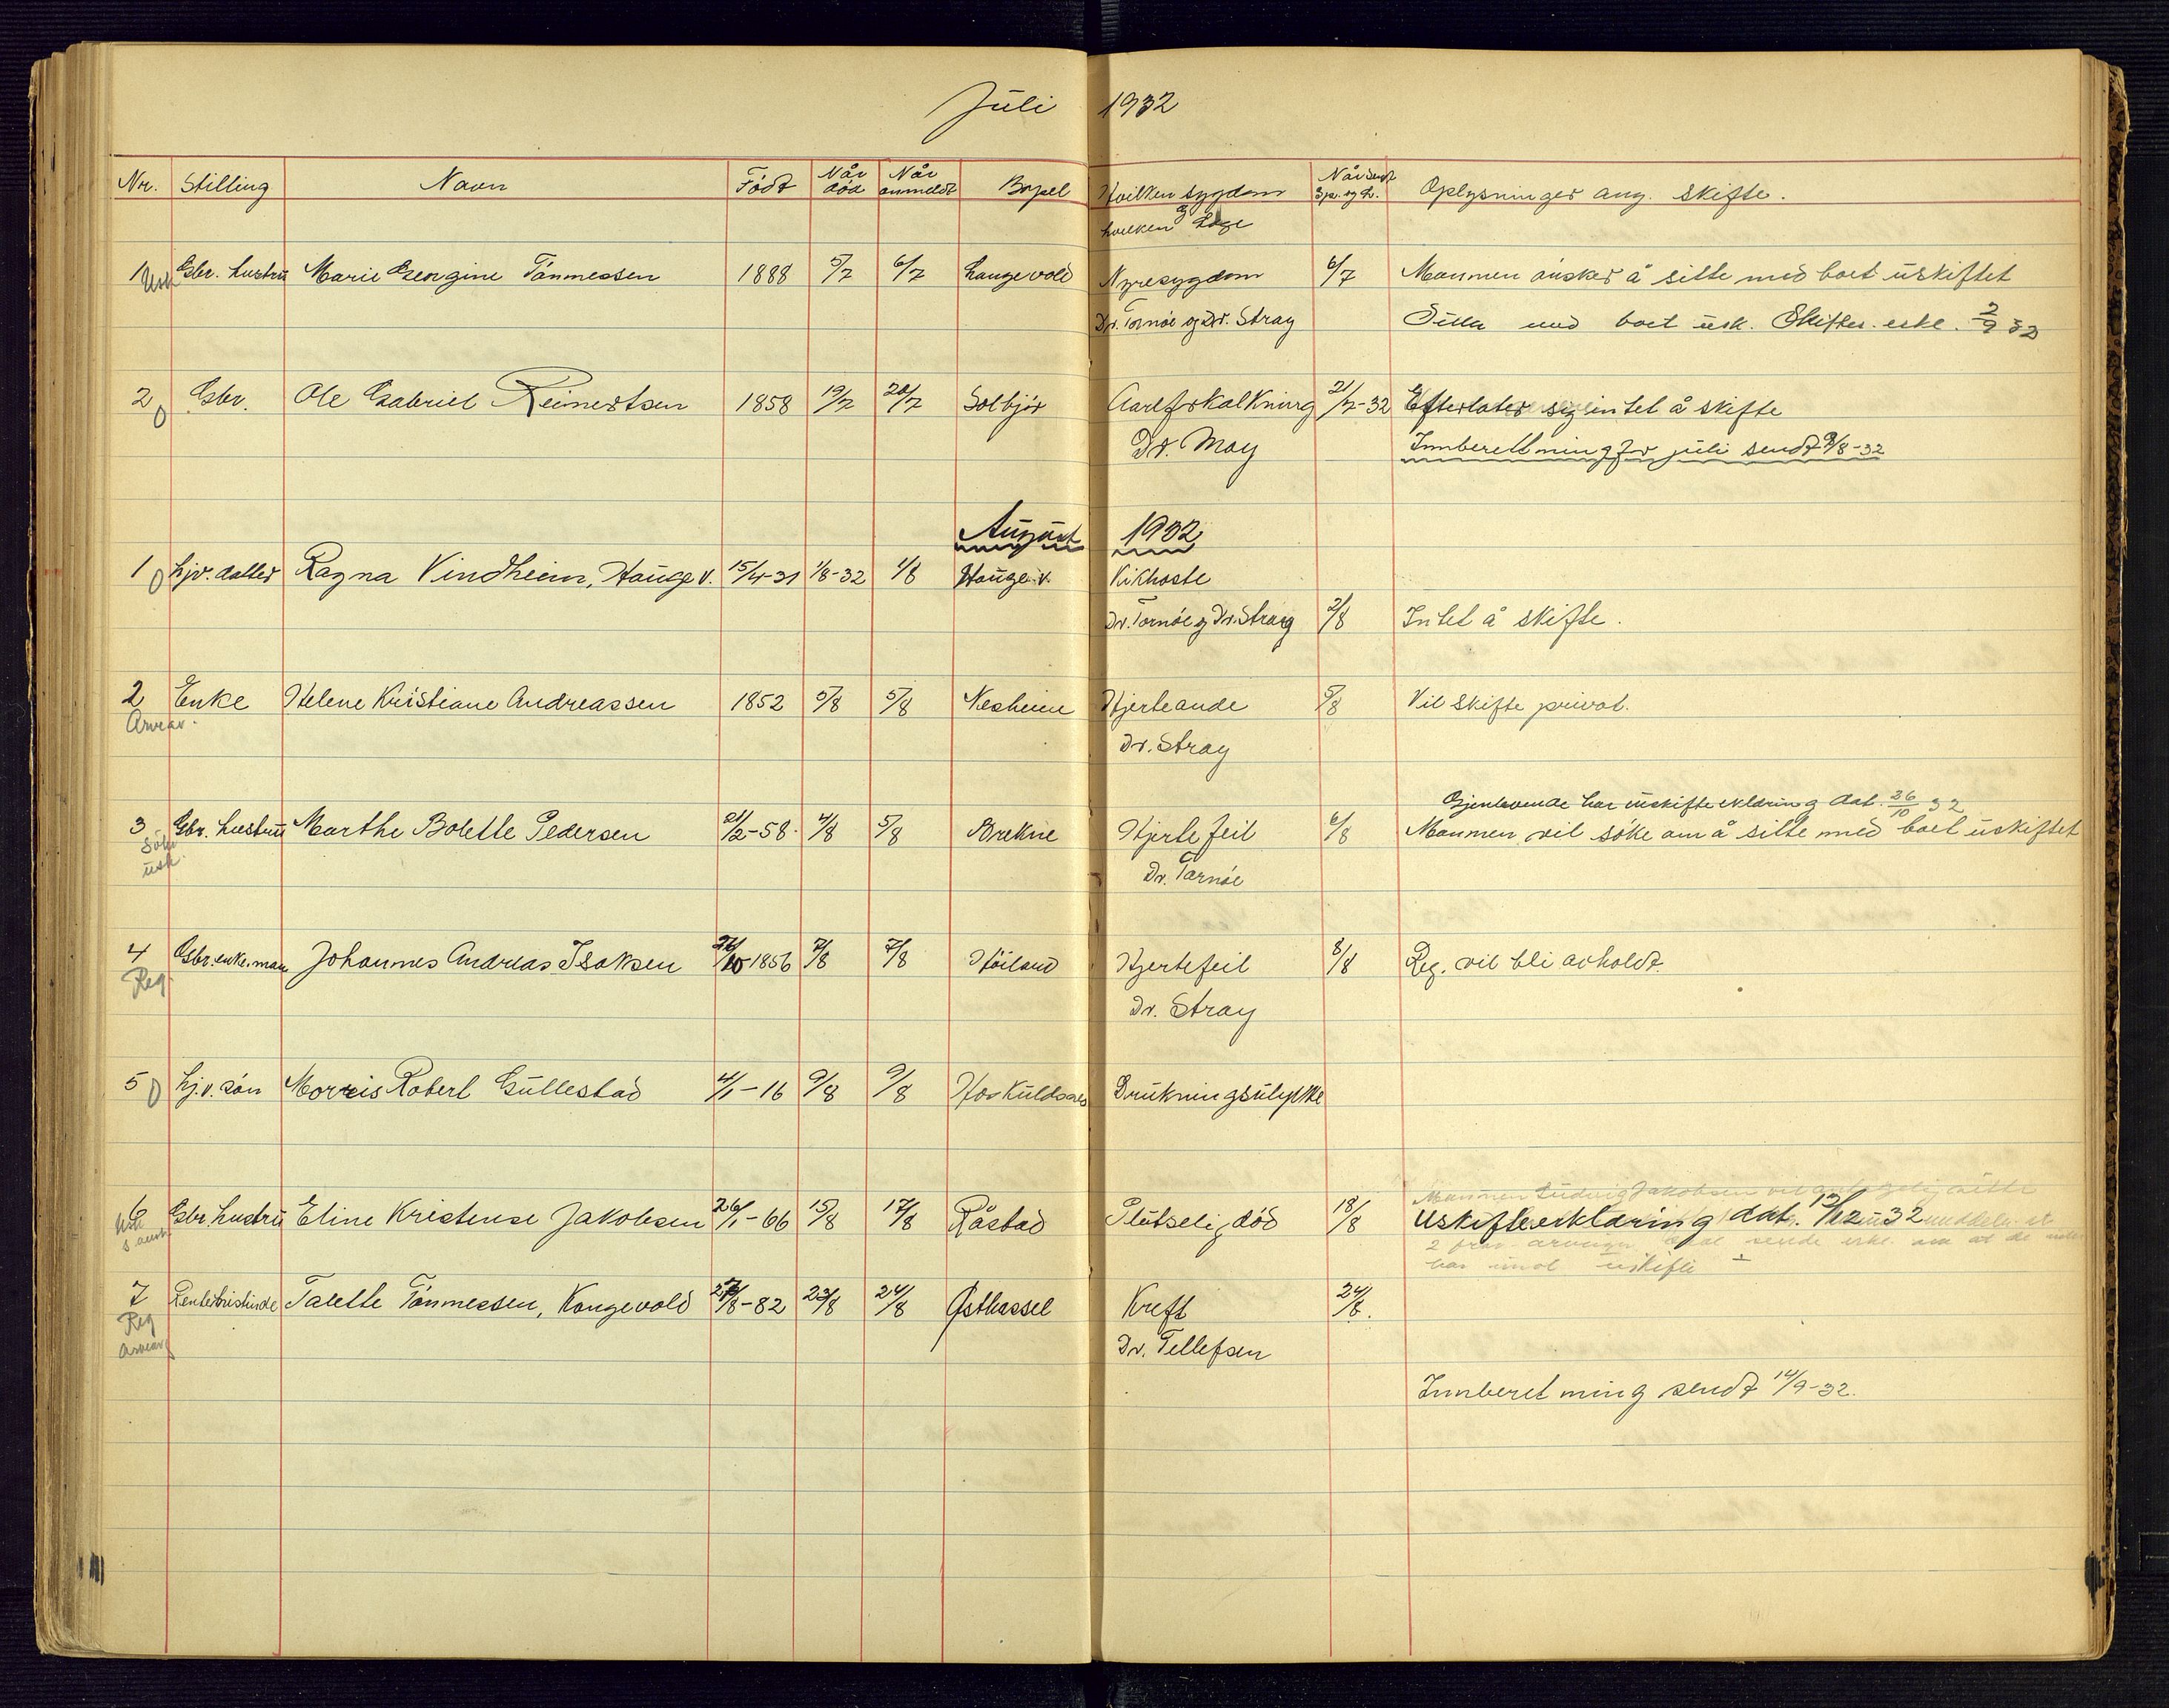 Juli 1932
Nr. Stilling Navn Født Når død Når anmeldt Bopel Hvilken sygdom Når sendt Spr. og L. Oplysninger ang. skifte.
og
hvilken Læge
1 Gbr. hustru Marie Georgine Tönnessen 1888 5/7 6/7 Langevold Nyresygdom 6/7 Mannen ønsker å sitte med boet uskiftet
Usk
Dr. Tornöe og Dr. Stray Sitta med boet usk. Skifter. erkl. 2/9 32
2 Gbr. Ole Gabriel Reinertsen 1858 19/7 20/7 Solbjør Aarefrokalkning 21/7-32 Efterlater sig intet å skifte
0
Dr. May Innberettning for juli sendt 9/8-32
August 1932
1 0 hjv. datter Ragna Vindheim, Hauge v. 15/4-31 1/8-32 1/8 Hauge v. Kikhoste
Dr. Tornöe og Dr. Stray 2/8 Intet å skifte.
2 Enke Helene Kristiane Andreassen 1852 5/8 5/8 Nesheim Hjerteonde 5/8 Vil skifte privat.
Arveav.
Dr. Stray
Gjenlevende har uskifteerklæring dat. 26/10 32
3 Gbr. hustru Marthe Bolette Pedersen 21/2-58. 4/8 5/8 Brekne Hjertefeil 6/8 Mannen vil söke om å sitte med boet uskiftet
Söke
usk.
Dr. Tornöe
4 Gbr. enkemann Johannes Andreas Isaksen /10 1856 7/8 7/8 Höiland Hjertefeil 8/8 Reg. vil bli avholdt.
Reg.
Dr. Stray
5 0 hj.v. sön Morris Robert Gullestad 4/1-16 9/8 9/8 Drukningsulykke
Mannen Ludvig Jakobsen vil antagelig sitte
6 Gbr. hustru Eline Kristense Jakobsen 26/1-66 15/8 17/8 Råstad Plutselig död 18/8 Uskifteerklæring dat. 13/12 32
Usk
2 arvinger sende erkl. om at de
har imot uskifte
7 Rentenistinde Talette Tönnessen, Kongevold /8-82 23/8 24/8 Østhassel Kreft 24/8.
Reg
Arveav
Dr. Tellefsen
Innberetning sendt 14/9-32.